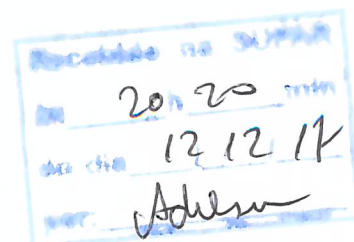 Recebido na SUPAR
às 20 h 20 min
do dia 12 12 17
por: